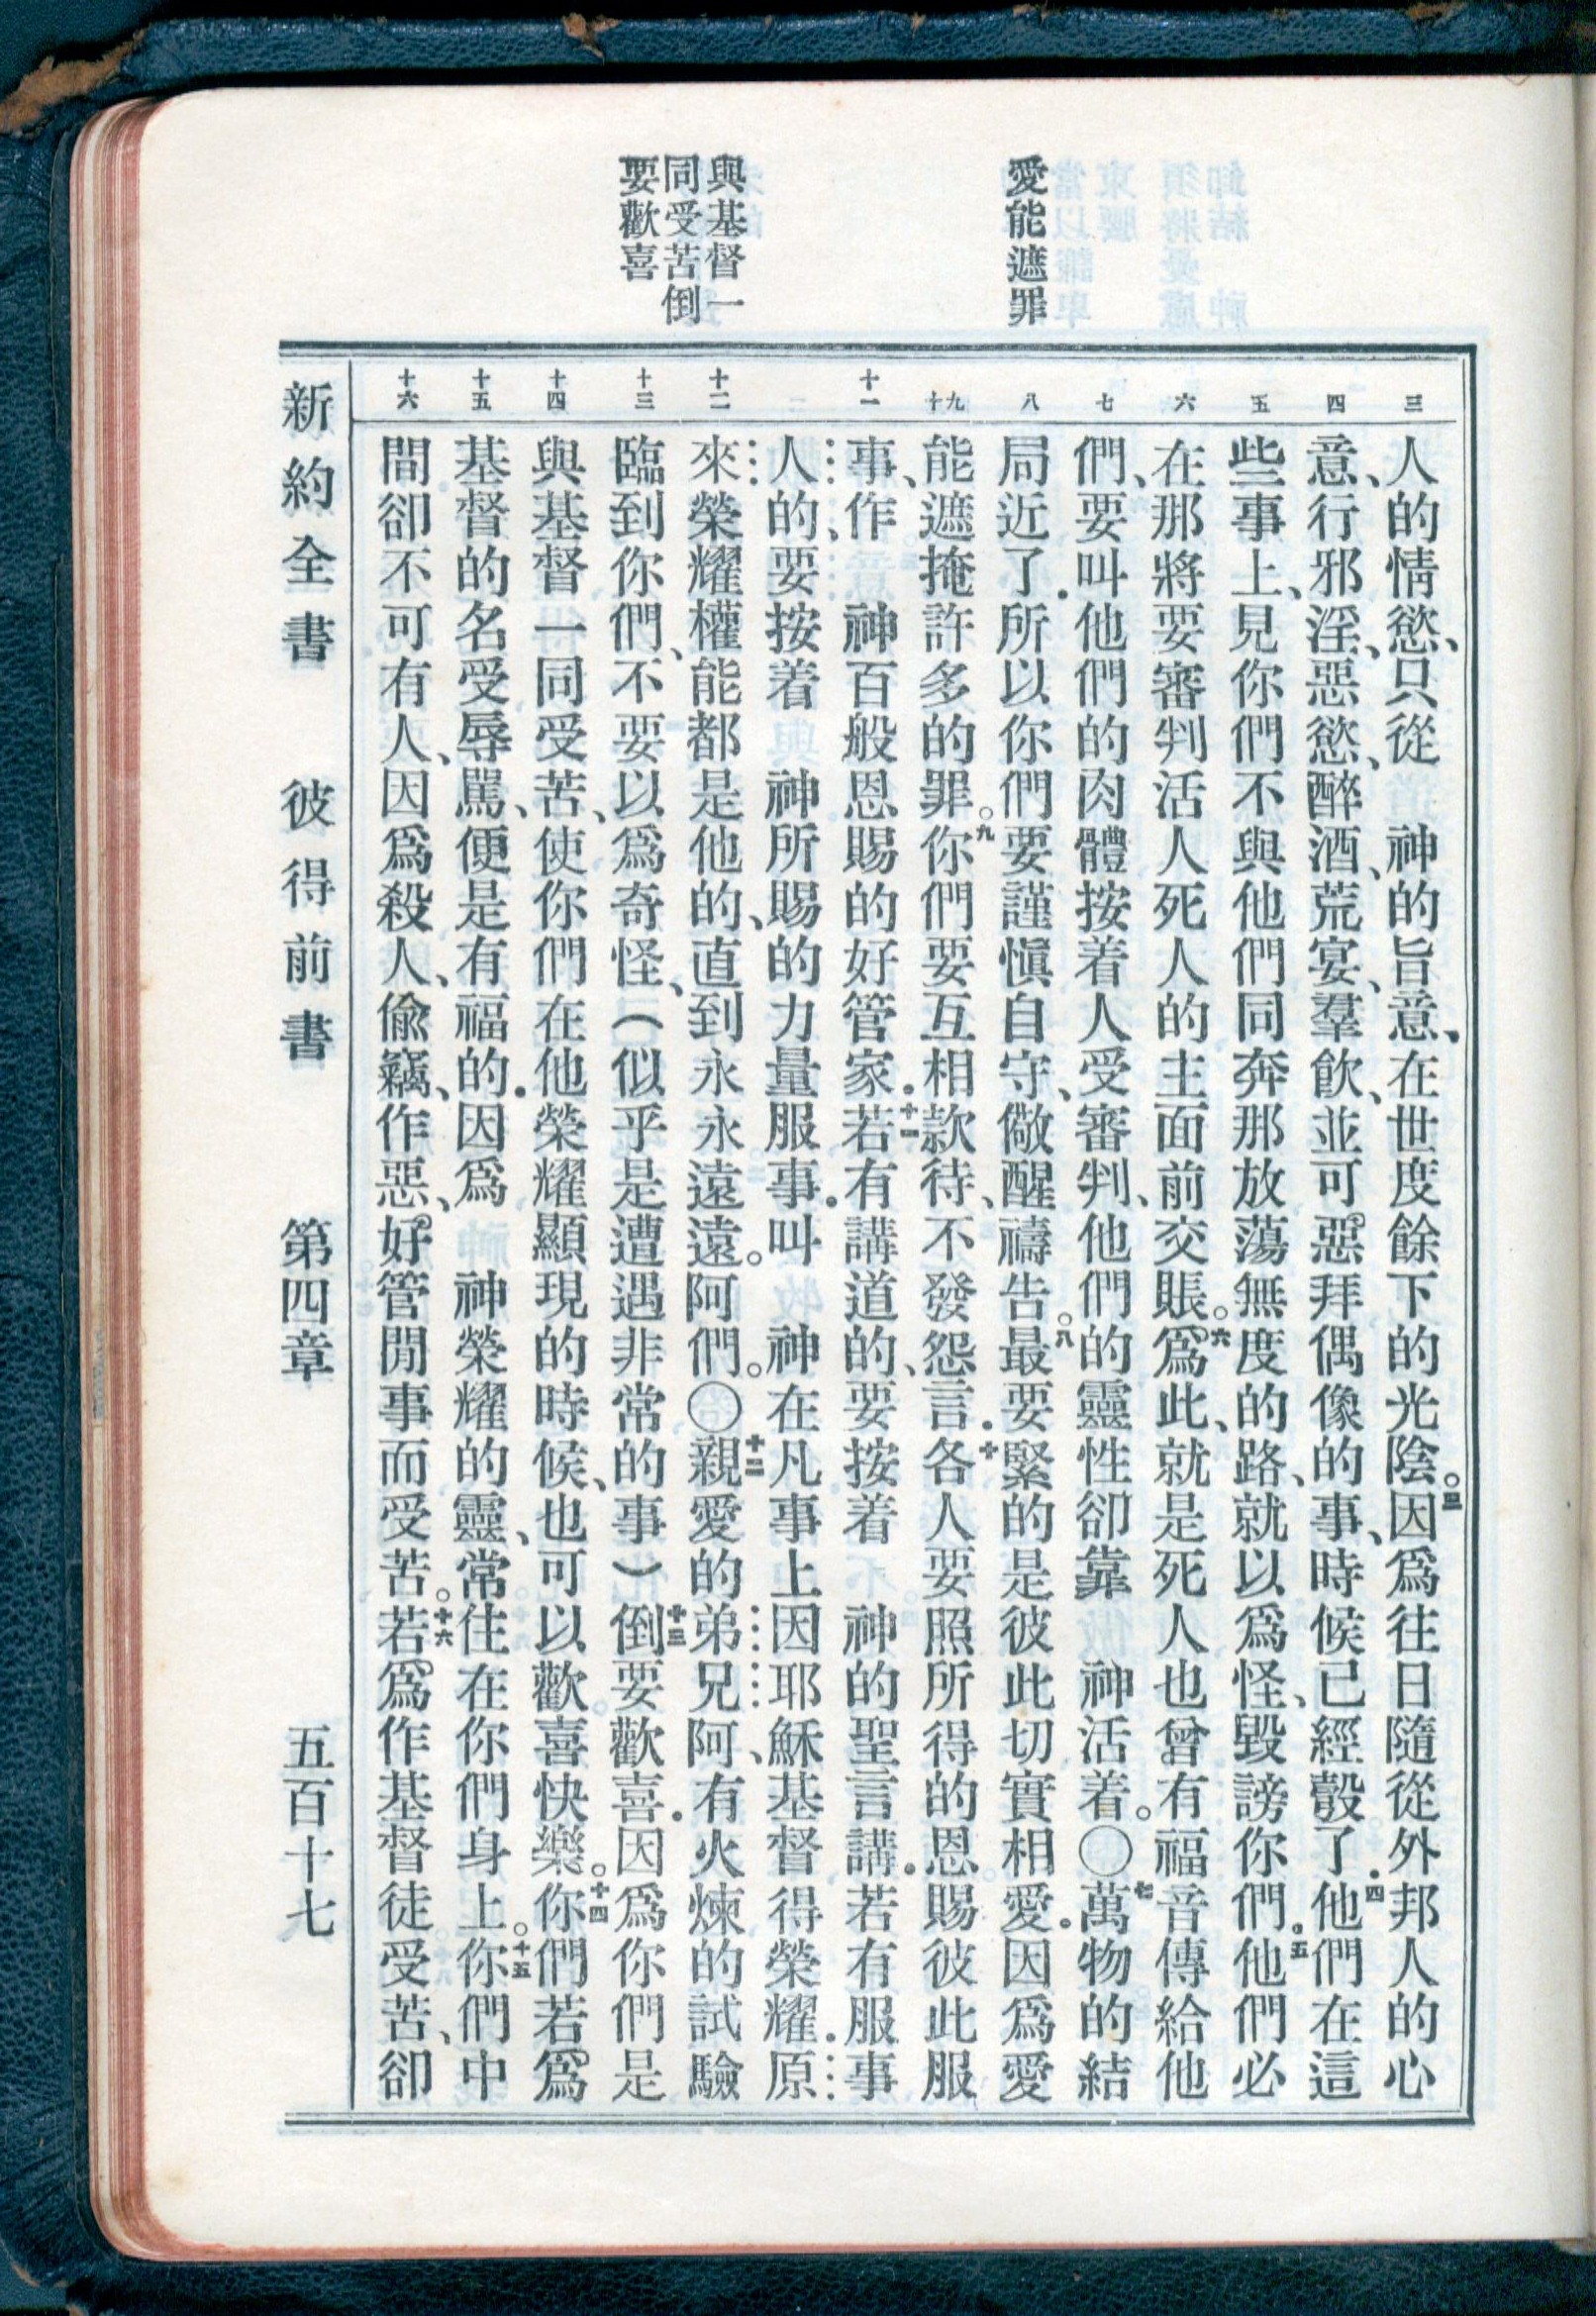 愛能遮罪
與基督一
同受苦倒
要歡喜
三
四
五
六
七
八
九 十
十一
十二
十三
十四
十五
十六
人的情慾、只從　神的旨意、在世度餘下的光陰。三因爲往日隨從外邦人的心
意、行邪淫、惡慾、醉酒、荒宴、羣飲、並可惡拜偶像的事、時候已經彀了．四他們在這
些事上、見你們不與他們同奔那放蕩無度的路、就以爲怪、毀謗你們．五他們必
在那將要審判活人死人的主面前交賬。六爲此、就是死人也曾有福音傳給他
們、要叫他們的肉體按着人受審判、他們的靈性卻靠　神活着。〇七萬物的結
局近了．所以你們要謹愼自守、儆醒禱告。八最要緊的是彼此切實相愛．因爲愛
能遮掩許多的罪。九你們要互相款待、不發怨言．十各人要照所得的恩賜彼此服
事、作　神百般恩賜的好管家．十一若有講道的、要按着　神的聖言講．若有服事
人的、要按着　神所賜的力量服事．叫　神在凡事上因耶穌基督得榮耀．原
來榮耀權能都是他的、直到永永遠遠。阿們。〇十二親愛的弟兄阿、有火煉的試驗
臨到你們、不要以爲奇怪、（似乎是遭遇非常的事）十三倒要歡喜．因爲你們是
與基督一同受苦、使你們在他榮耀顯現的時候、也可以歡喜快樂。十四你們若爲
基督的名受辱駡、便是有福的．因爲　神榮耀的靈、常住在你們身上。十五你們中
間卻不可有人、因爲殺人、偷竊、作惡、好管閒事而受苦。十六若爲作基督徒受苦、卻
新約全書　彼得前書　第四章　五百十七